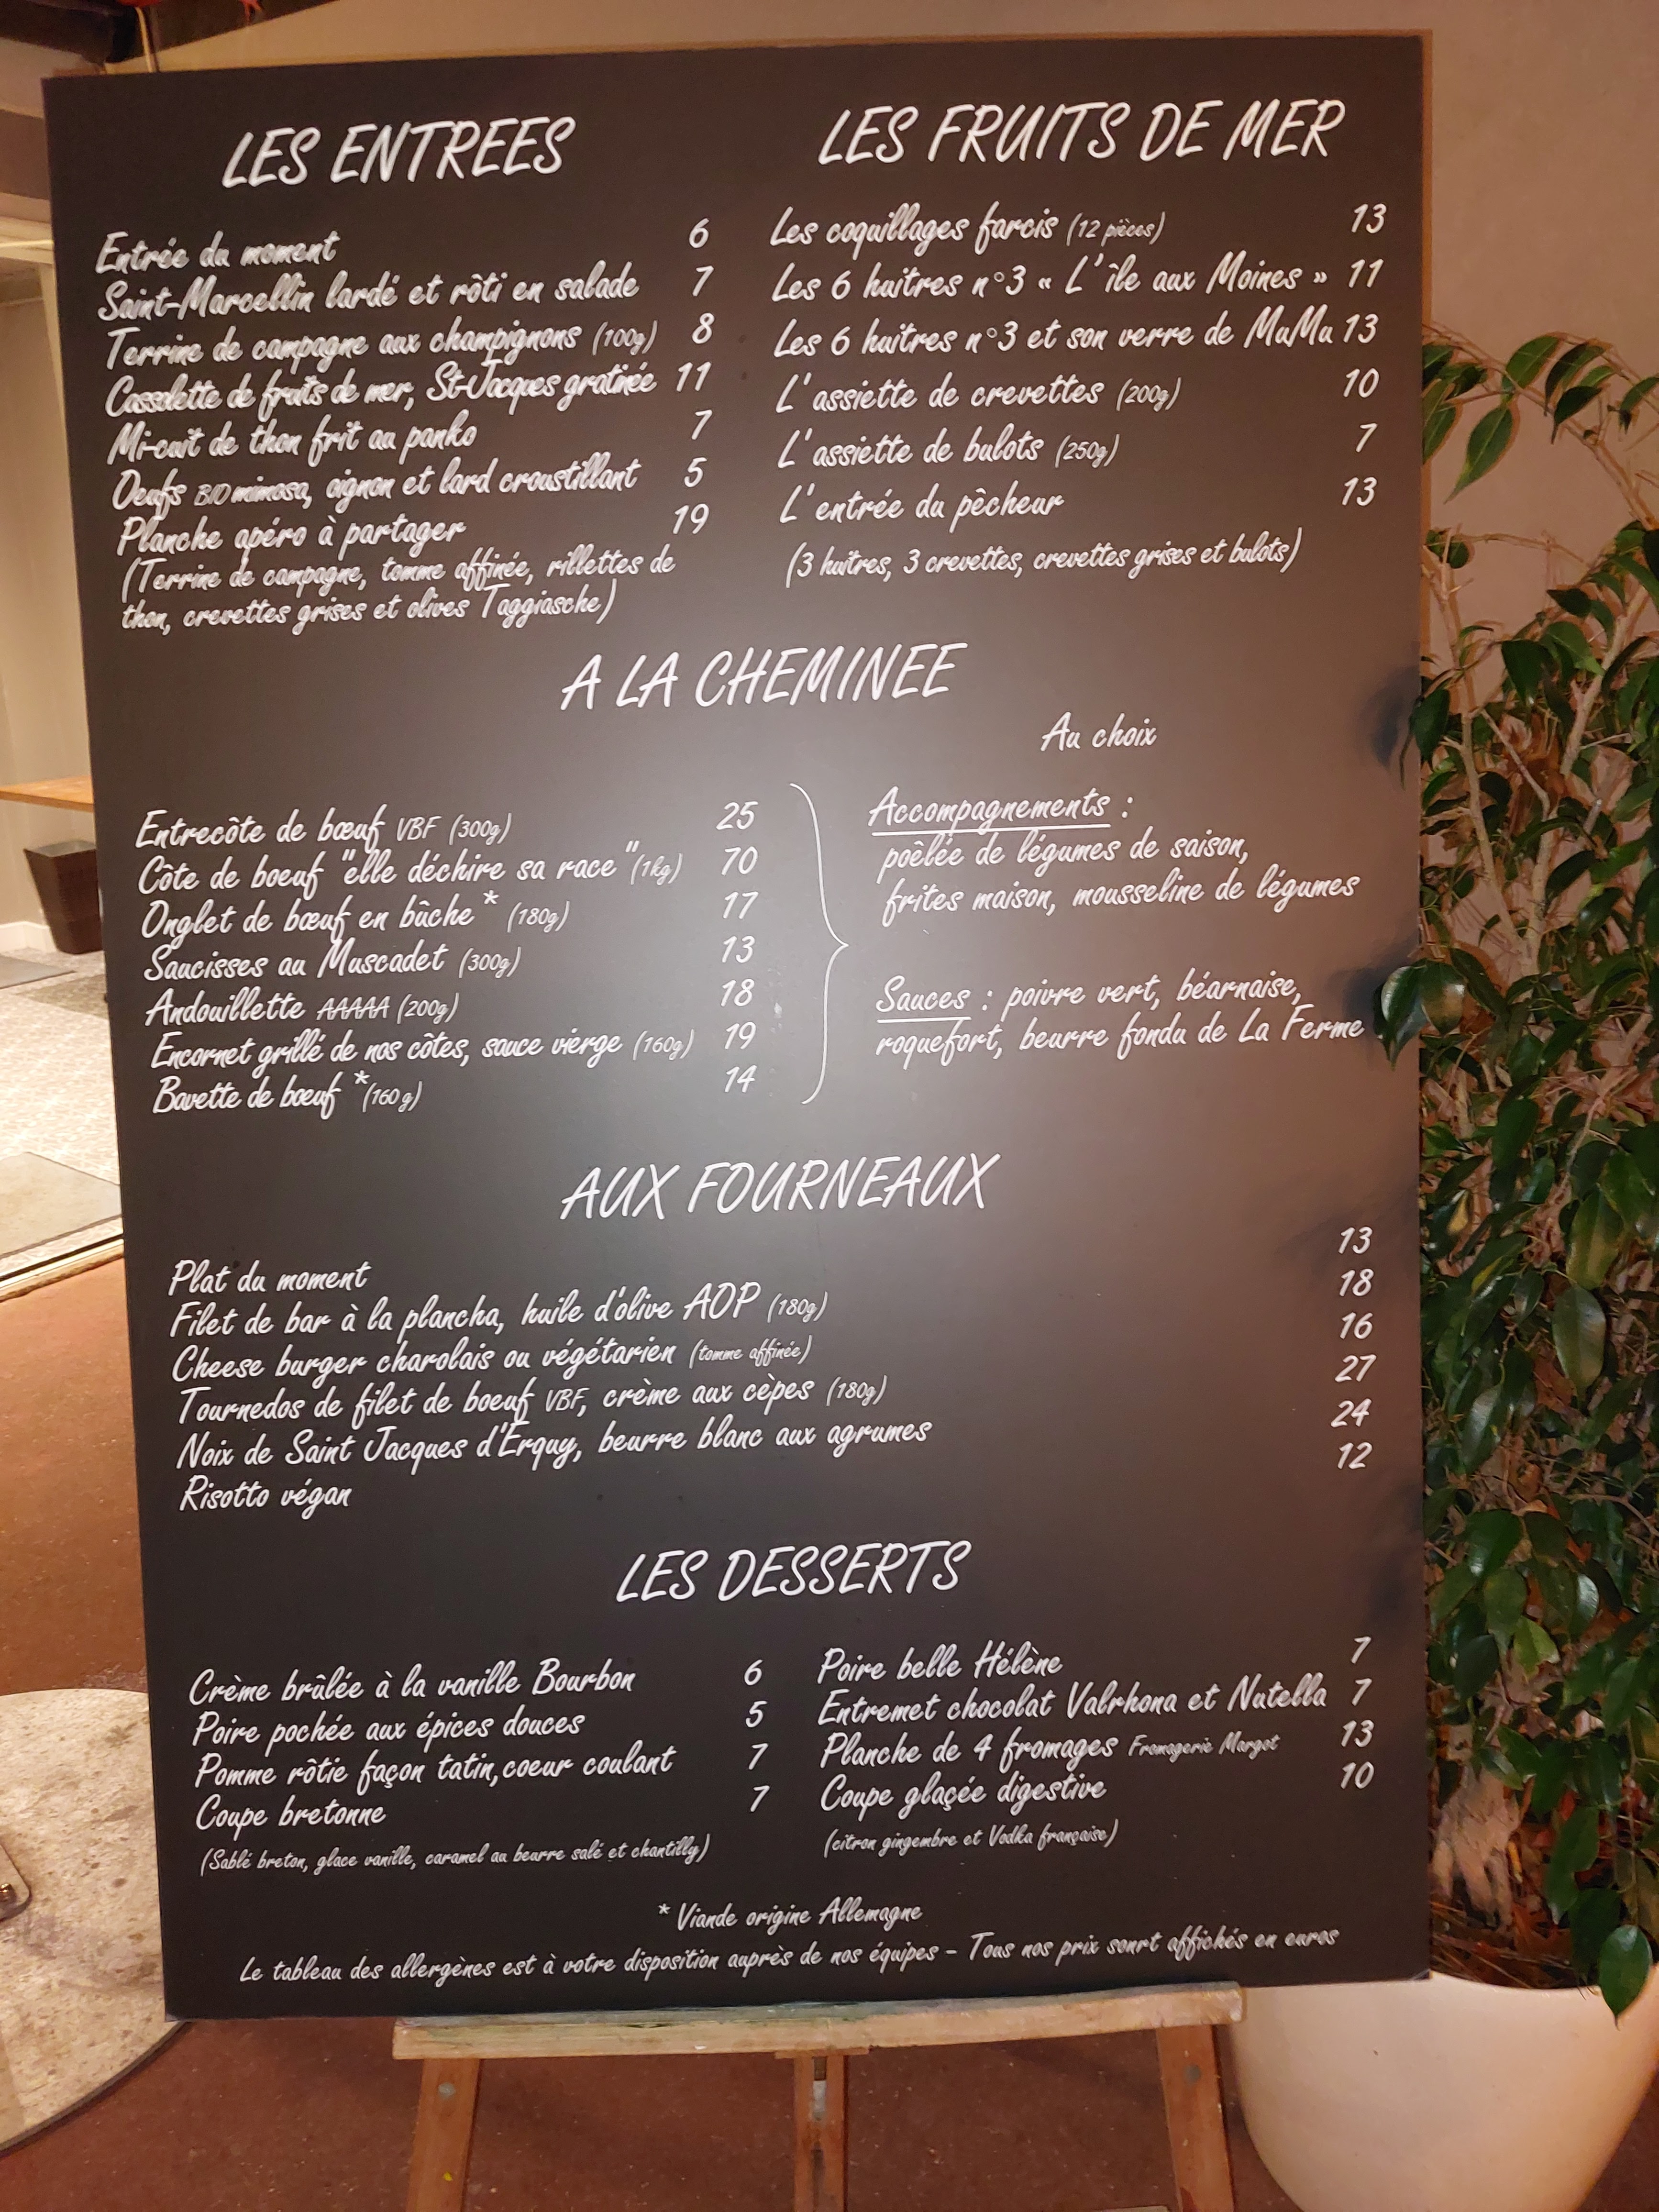 LES ENTREES
Entrée du moment 6
Saint-Marcellin lardé et rôti en salade 7
Terrine de campagne aux champignons (100g) 8
Cassolette de fruits de mer, St-Jacques gratinée 11
Mi-cuit de thon frit au panko 7
Oeufs BIO mimosa, oignon et lard croustillant 5
Planche apéro à partager 19
(Terrine de campagne, tomme affinée, rillettes de
thon, crevettes grises et olives Taggiasche)
LES FRUITS DE MER
Les coquillages farcis (12 pièces) 13
Les 6 huîtres n°3 « L'île aux Moines » 11
Les 6 huîtres n°3 et son verre de MuMu 13
L'assiette de crevettes (200g) 10
L'assiette de bulots (250g) 7
L'entrée du pêcheur 13
(3 huîtres, 3 crevettes, crevettes grises et bulots)
A LA CHEMINEE
Entrecôte de bœuf VBF (300g) 25
Côte de boeuf "elle déchire sa race" (1kg) 70
Onglet de bœuf en bûche * (180g) 17
Saucisses au Muscadet (300g) 13
Andouillette AAAAA (200g) 18
Encornet grillé de nos côtes, sauce vierge (160g) 19
Bavette de bœuf *(160g) 14
Au choix
Accompagnements :
poêlée de légumes de saison,
frites maison, mousseline de légumes
Sauces : poivre vert, béarnaise,
roquefort, beurre fondu de La Ferme
AUX FOURNEAUX
Plat du moment 13
Filet de bar à la plancha, huile d'olive AOP (180g) 18
Cheese burger charolais ou végétarien (tomme affinée) 16
Tournedos de filet de boeuf VBF, crème aux cèpes (180g) 27
Noix de Saint Jacques d'Erquy, beurre blanc aux agrumes 24
Risotto végan 12
LES DESSERTS
Crème brûlée à la vanille Bourbon 6
Poire pochée aux épices douces 5
Pomme rôtie façon tatin, coeur coulant 7
Coupe bretonne 7
(Sablé breton, glace vanille, caramel au beurre salé et chantilly)
Poire belle Hélène 7
Entremet chocolat Valrhona et Nutella 7
Planche de 4 fromages Fromagerie Margot 13
Coupe glaçée digestive 10
(citron gingembre et Vodka française)
* Viande origine Allemagne
Le tableau des allergènes est à votre disposition auprès de nos équipes - Tous nos prix sonrt affichés en euros